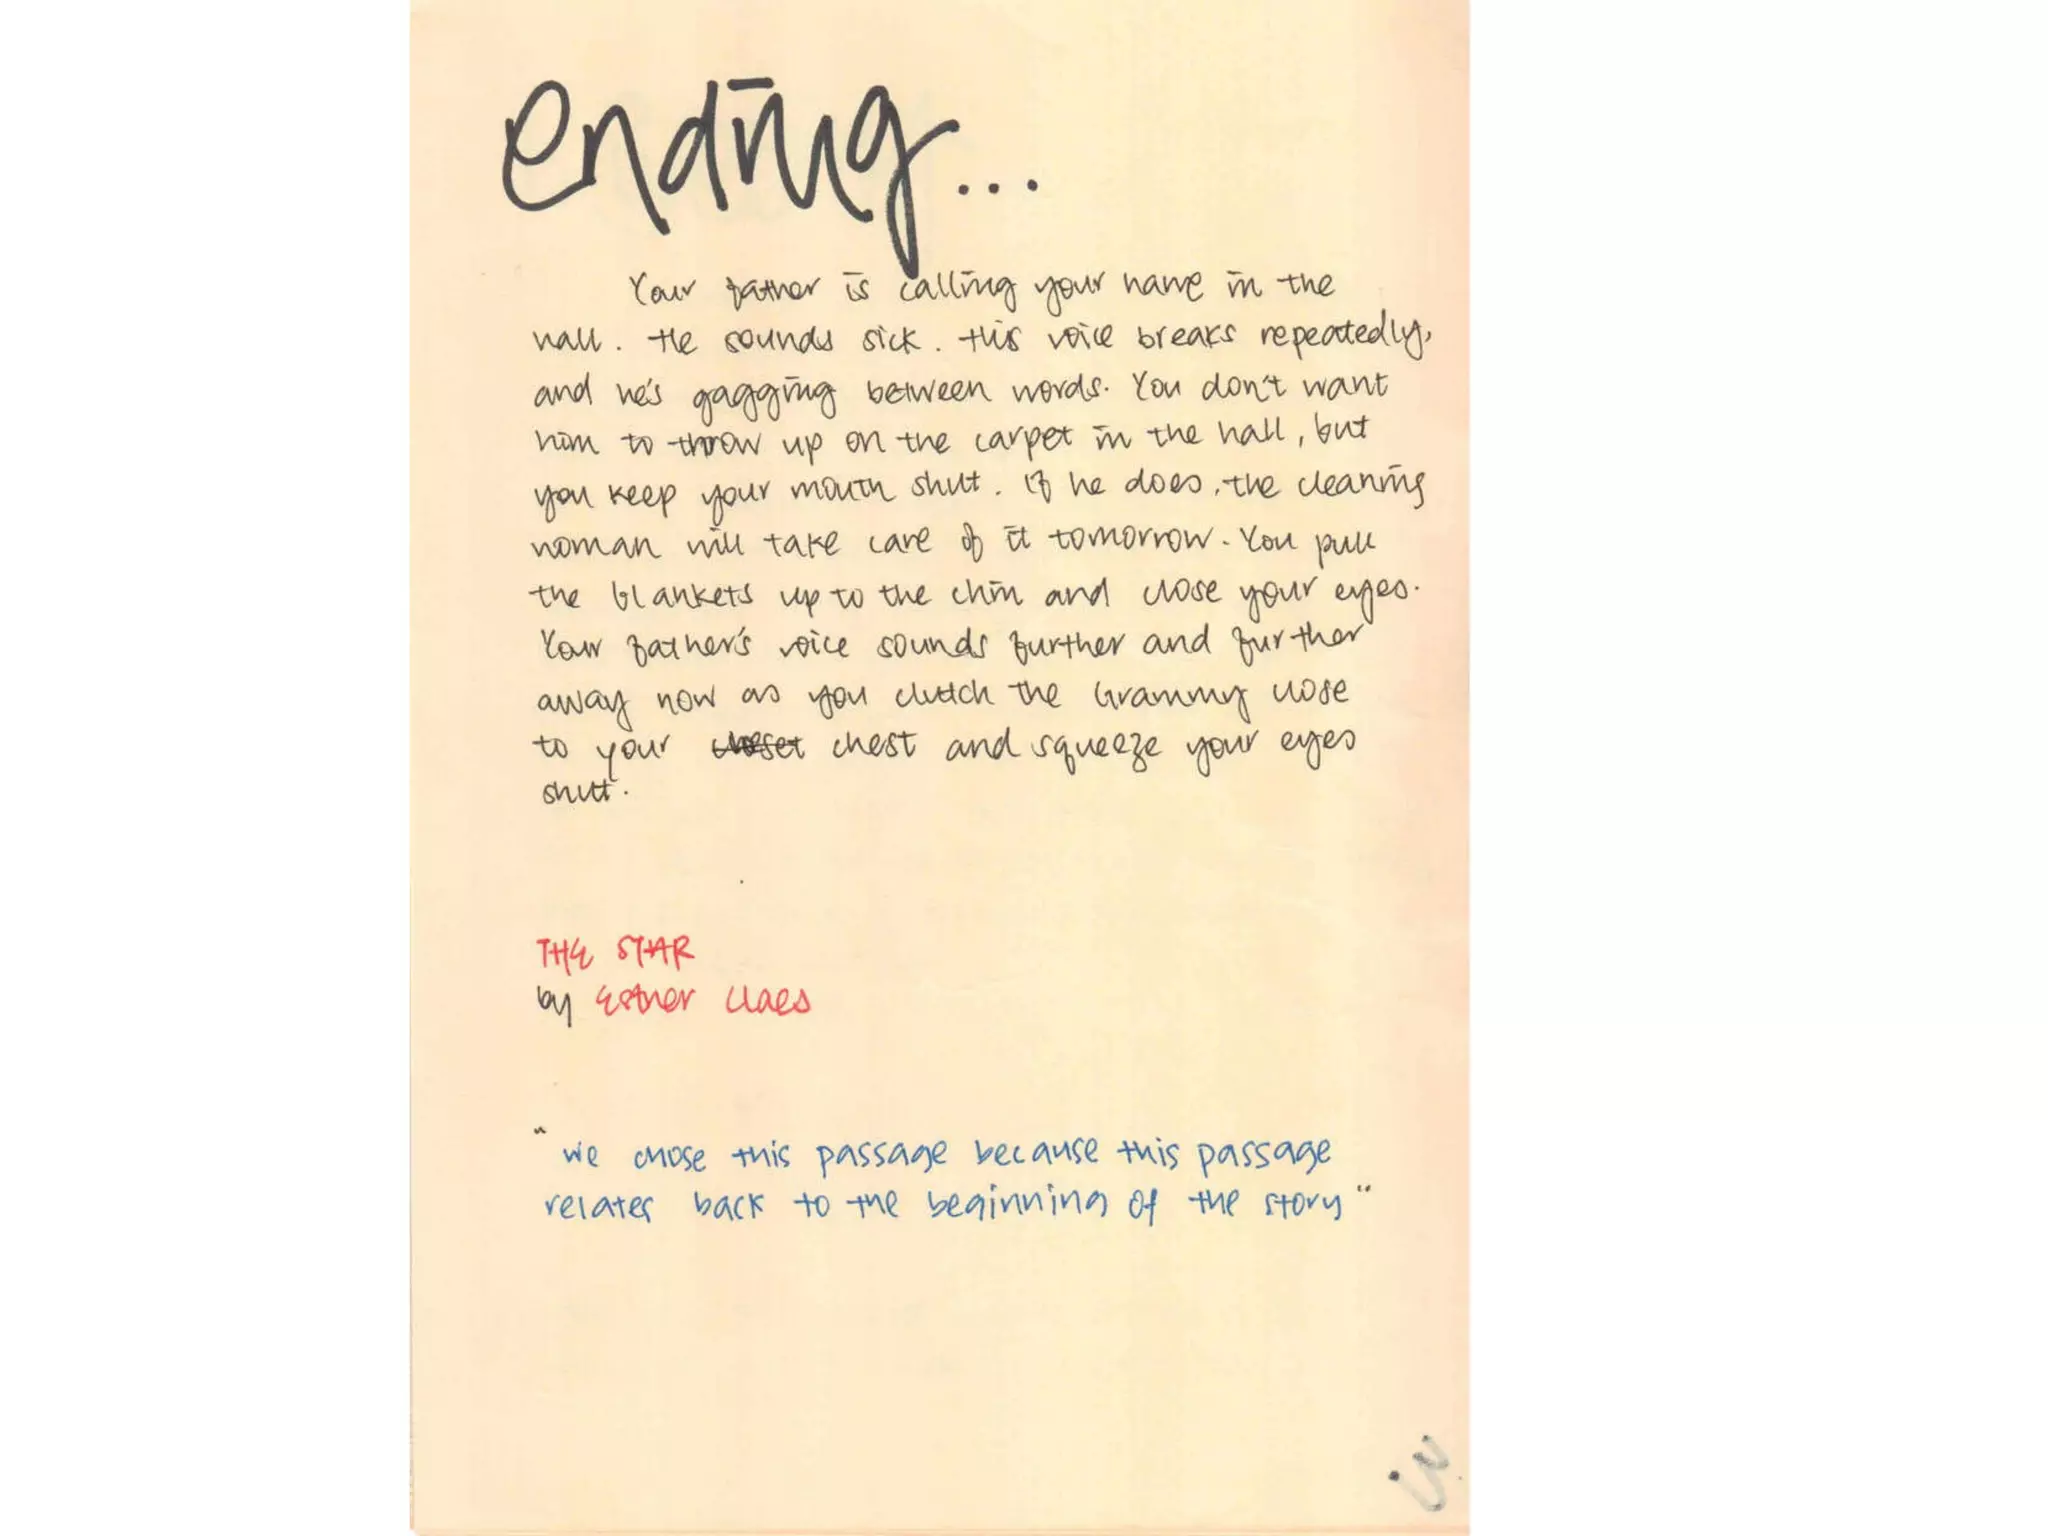 Ending...
Your father is calling your name in the
hall. He sounds sick. His voice breaks repeatedly,
and he's gagging between words. You don't want
him to throw up on the carpet in the hall, but
you keep your mouth shut. If he does, the cleaning
woman will take care of it tomorrow. You pull
the blankets up to the chin and close your eyes.
Your father's voice sounds further and further
away now as you clutch the Grammy close
to your closet chest and squeeze your eyes
shut.
THE STAR
by Esther Claes
"We chose this passage because this passage
relates back to the beginning of the story"